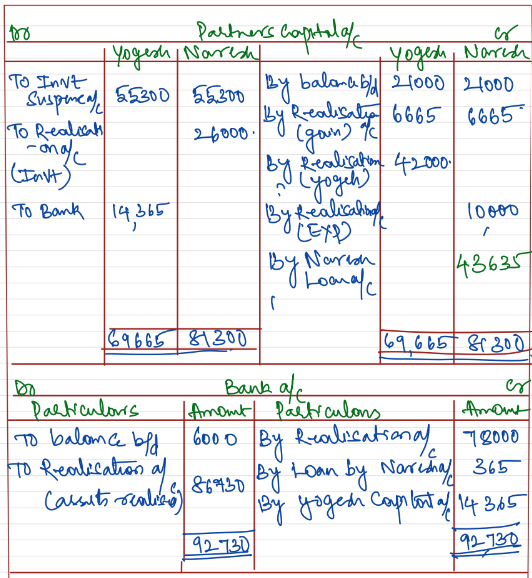 Dr Partners Capital a/c Cr
Yogesh Naresh Yogesh Naresh
To Invt Suspence a/c 55300 55300 By balance b/d 21000 21000
By Realisation (gain) a/c 6665 6665
To Realisati-on a/c (Invt) 26000
By Realisation (yogeh) 42000
To Bank 14,365 By Realisation a/c (EXP) 10000
By Naresh Loan a/c 43635
69665 81300 69,665 81300
Dr Bank a/c Cr
Particulars Amount Particulars Amount
To balance b/d 6000 By Realisation a/c 78000
To Realisation a/c (assets realise) 86730 By Loan by Naresh a/c 365
By yogesh Capital a/c 14365
92730 92730